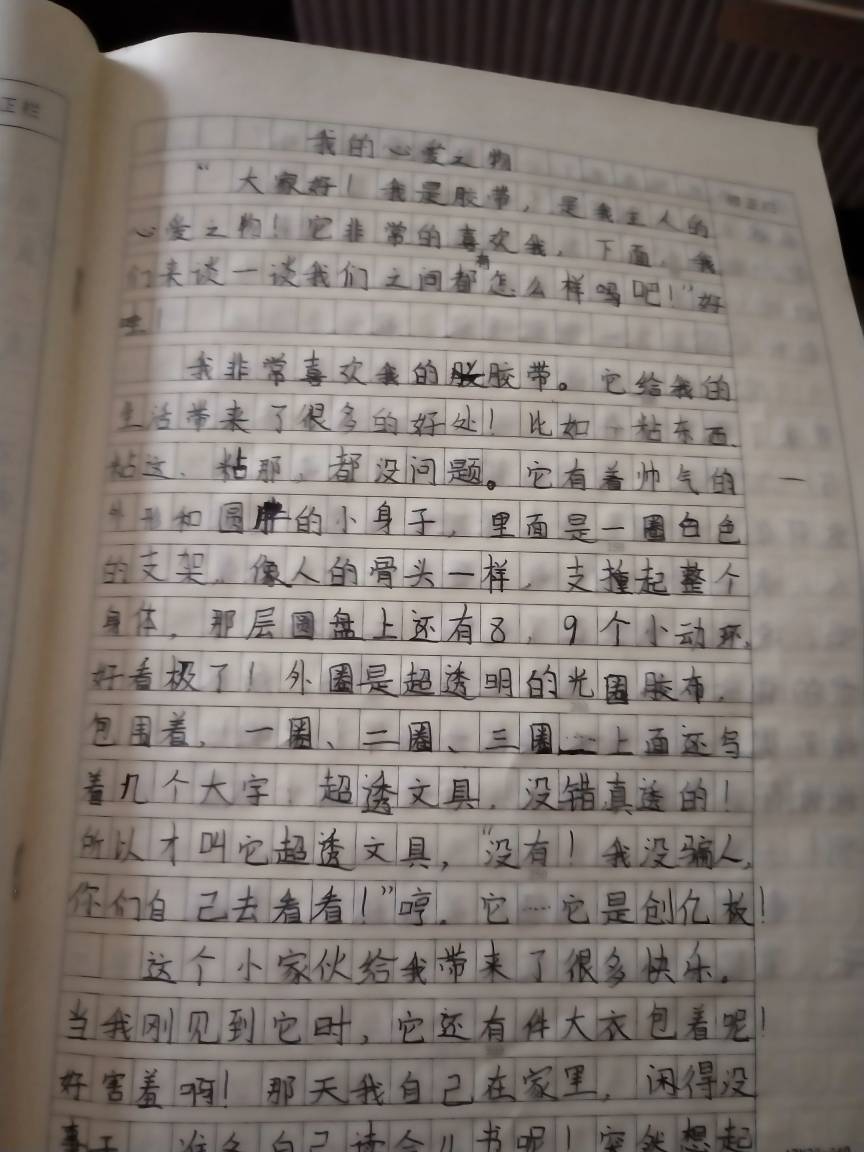 我的心爱之物
“大家好！我是胶带，是我主人的
心爱之物！它非常的喜欢我，下面，我
们来谈一谈我们之间都有怎么样吗吧！”好
哇！
我非常喜欢我的胶带。它给我的
生活带来了很多的好处！比如粘东西、
粘这、粘那，都没问题。它有着帅气的
外形和圆胖的小身子，里面是一圈白色
的支架，像人的骨头一样，支撞起整个
身体，那层圆盘上还有8，9个小动环，
好看极了！外圈是超透明的光圆胶布，
包围着，一圈、二圈、三圈……上面还写
着几个大字，超透文具，没错真透的！
所以才叫它超透文具，“没有！我没骗人，
你们自己去看看！”哼，它……它是创亿板！
这个小家伙给我带来了很多快乐。
当我刚见到它时，它还有件大衣包着呢！
好害羞啊！那天我自己在家里，闲得没
事干，准备自己读会儿书呢！突然想起